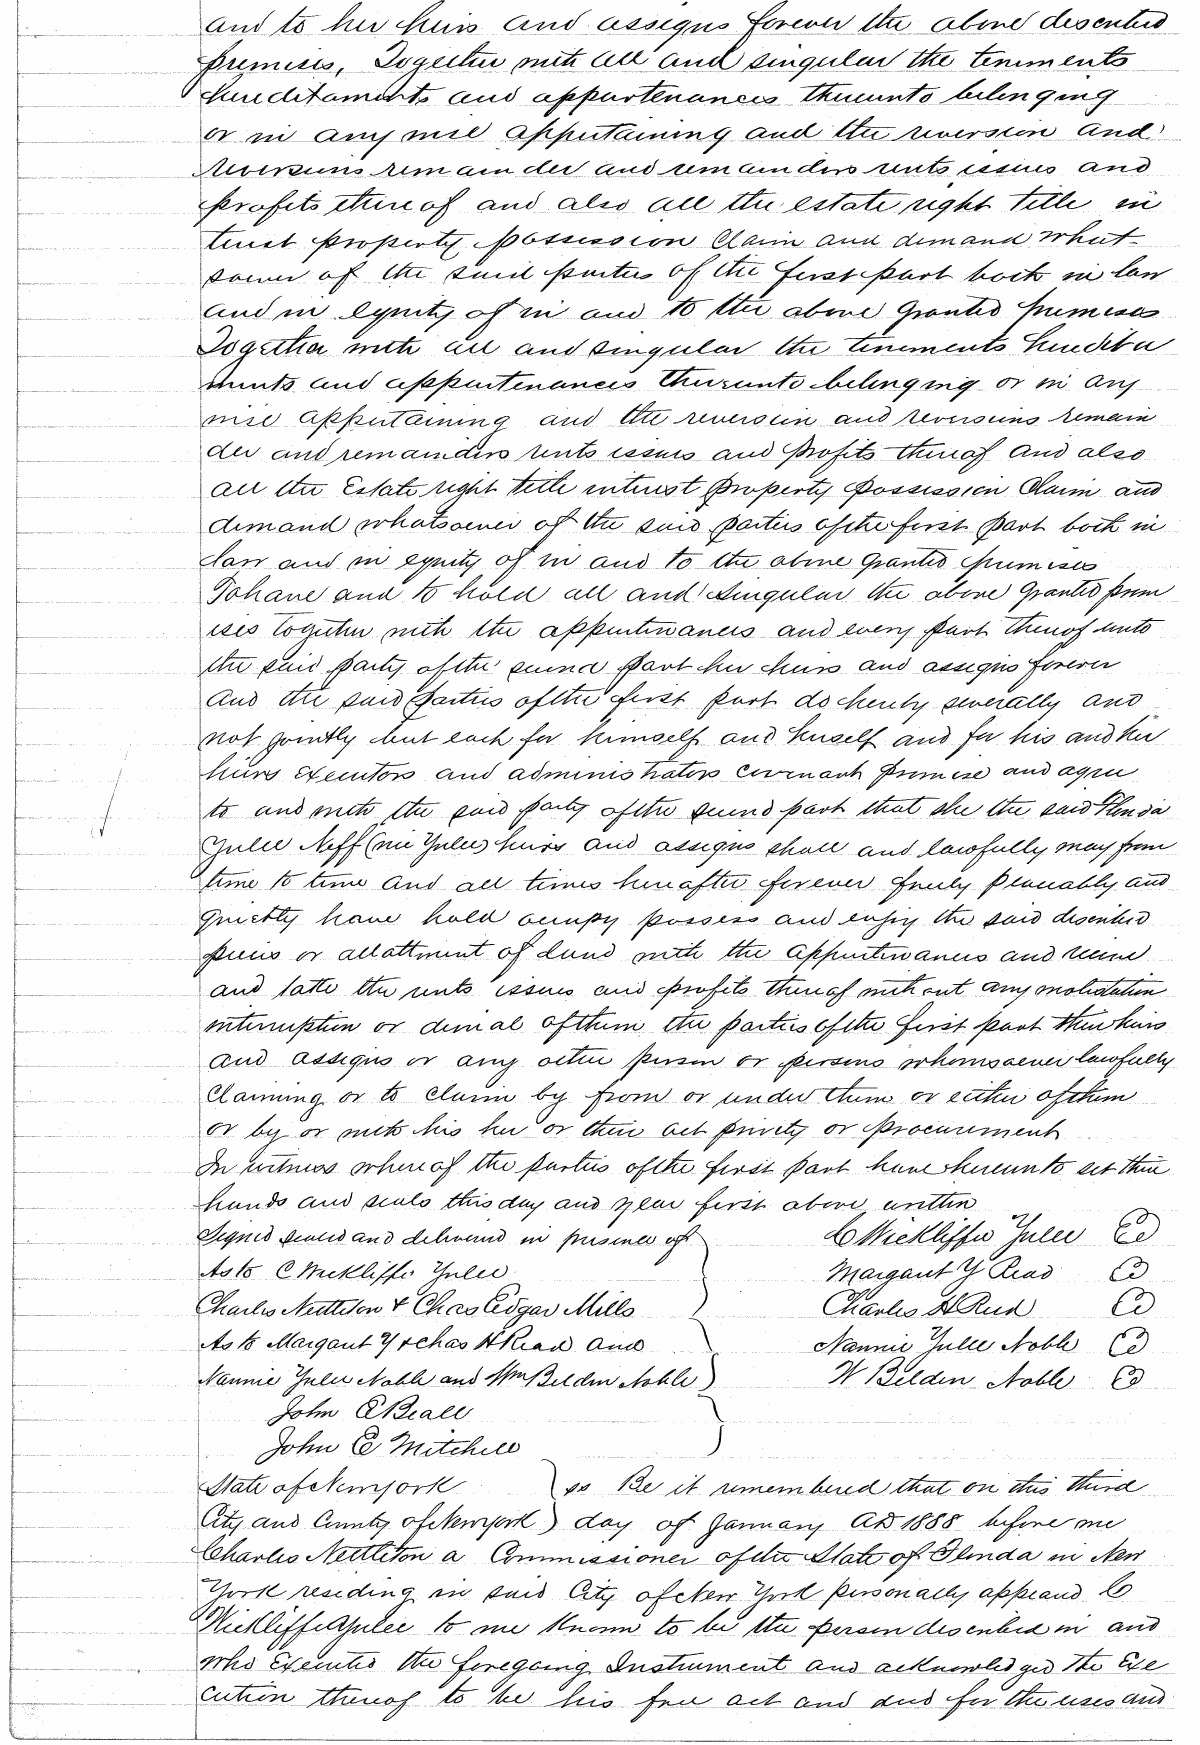 and to her heirs and assigns forever the above described
premises, Together with all and singular the teniments
hereditaments and appurtenances thereunto belonging
or in any wise appertaining and the reversion and
reversions remainder and remainders rents issues and
profits thereof and also all the estate right title in
terest property possession Claim and demand what-
soever of the said parties of the first part both in law
and in equity of in and to the above granted premises
Together with all and singular the tenements heredita
ments and appurtenances thereunto belonging or in any
wise appertaining and the reversion and reversions remain
der and remainders rents issues and profits thereof and also
all the Estate right title interest property possession Claim and
demand whatsoever of the said parties of the first part both in
law and in equity of in and to the above granted premises
To have and to hold all and singular the above granted prem
ises together with the appurtenances and every part thereof unto
the said party of the second part her heirs and assigns forever
And the said parties of the first part do hereby severally and
not jointly but each for himself and herself and for his and her
heirs executors and administrators covenant promise and agree
to and with the said party of the second part that she the said Florida
Yulee Neff (nee Yulee) heirs and assigns shall and lawfully may from
time to time and all times hereafter forever freely peaceably and
quietly have hold occupy possess and enjoy the said described
piece or allottment of land with the appurtenances and receive
and take the rents issues and profits thereof without any molestation
interruption or denial of them the parties of the first part their heirs
and assigns or any other person or persons whomsoever lawfully
Claiming or to claim by from or under them or either of them
or by or with his her or their act privity or procurement
In witness whereof the parties of the first part have hereunto set their
hands and seals this day and year first above written
Signed sealed and delivered in presence of C Wickliffe Yulee
As to C Wickliffe Yulee Margaret Y Read
Charles Nettleton & Chas Edgar Mills Charles H Read
As to Margaret Y & Chas H Read and Nannie Yulee Noble
Nannie Yulee Noble and Wm Belden Noble W Belden Noble
John E Beall
John C Mitchell
State of New York ss Be it remembered that on this third
City and County of New york day of January AD 1888 before me
Charles Nettleton a Commissioner of the State of Florida in New
York residing in said City of New York personally appeared C
Wickliffe Yulee to me Known to be the person described in and
who Executed the foregoing Instrument and acknowledged the Exe
cution thereof to be his free act and deed for the uses and